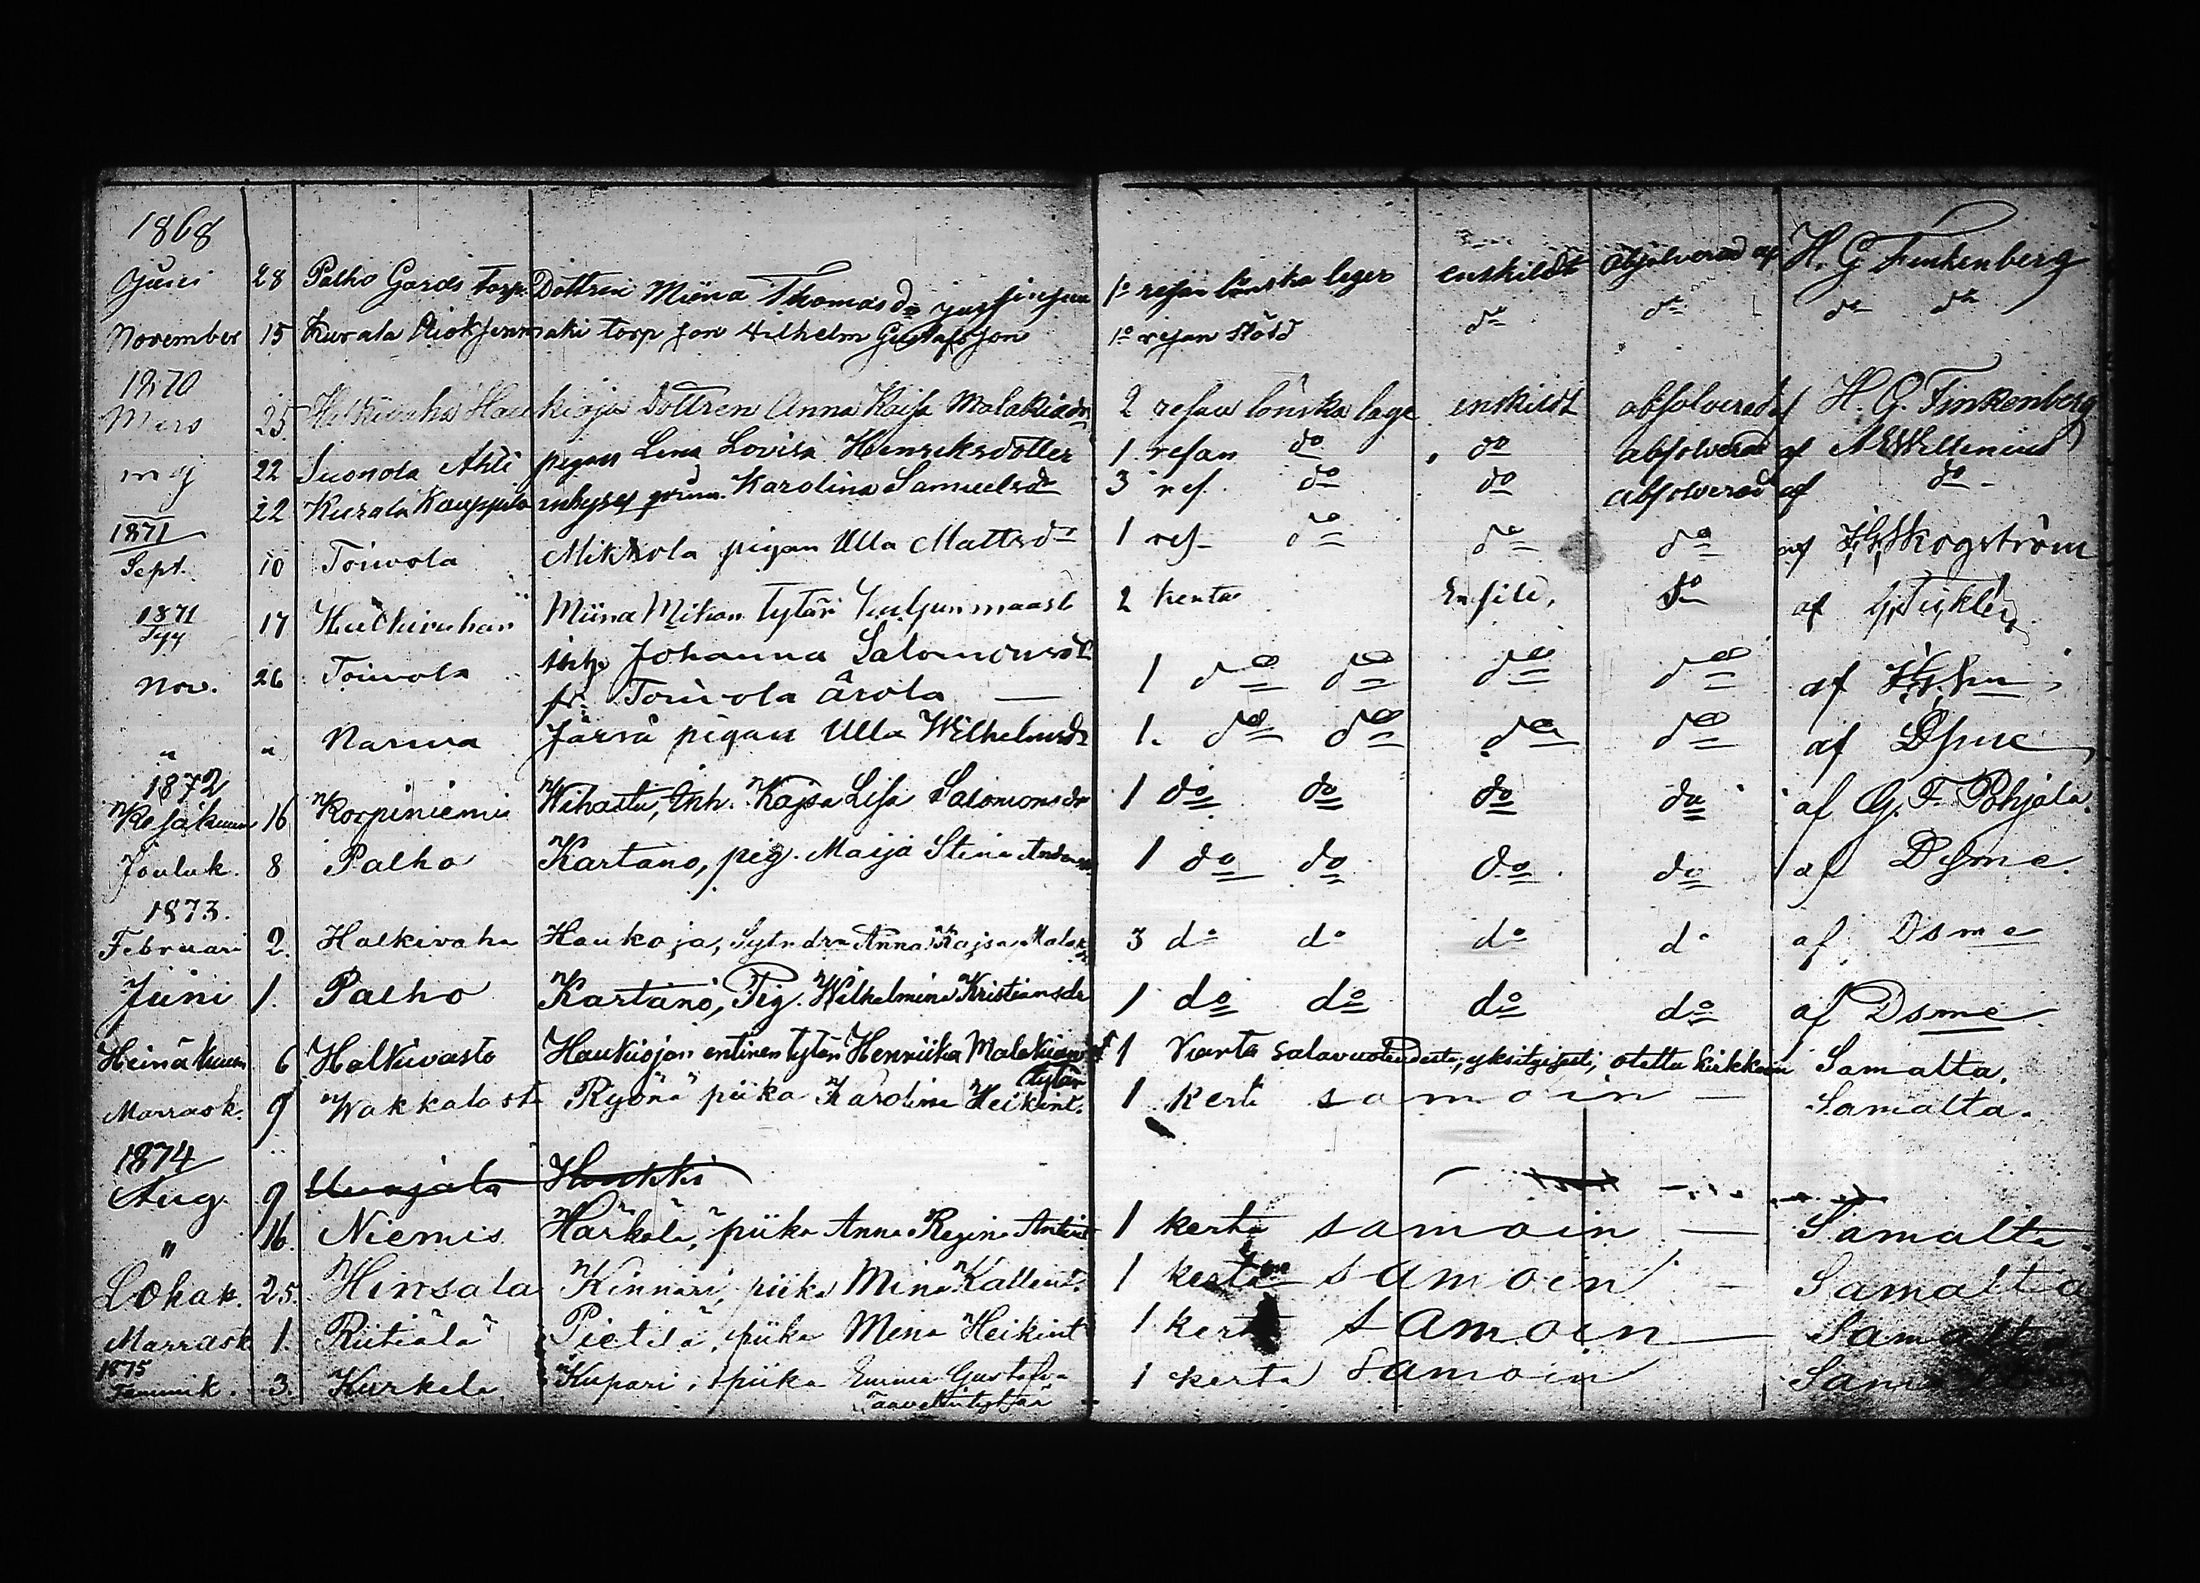 1868
Juni 28 Palho Gårds torp. Dottren Miina Thomasdr 1o resan lönska leger enskildt absolverad af H. G. Finkenberg
November 15 Kurala torp son Wilhelm Gustafsson 1o resan stöld do do do do
1870
Mars 25. Halkivaha Haukioja Dottren Anna Kaisa Malakiadr 2 resan lönska lage enskildt absolverad af H. G. Finkenberg
maj 22 Suonola Ahli pigan Lena Lovisa Henriksdotter 1 resan do do absolverad af
22 Kurala Kauppila inhyses Karolina Samuelsdr 3 res. do do absolverad af do
1871
Sept. 10 Toivola Mikkola pigan Ulla Mattsdr 1 res. do do do af Skogström
1871
17 Halkivahan Miina Mikon tytär 2 kerta Do af
Nov. 26 Toivola inh. Johanna Salomonsdr
fr. Toivola Arola — 1 do do do do af
" " Narwa Järvä pigan Ulla Wilhelmsdr 1. do do do do af Dsme
1872
16 Korpiniemi Wihattu, Inh. Kajsa Lisa Salomonsdr 1 do do do do af G. F. Pohjala.
Jouluk. 8 Palho Kartano, pig. Maija Stina 1 do do do do af Dsme.
1873.
Februari 2. Halkivaha Haukoja, Anna Kajsa Malak 3 do do do do af Dsme
Juni 1. Palho Kartano, Pig. Wilhelmina Kristiansdr 1 do do do do af Dsme
Heinäkuun 6 Halkivasto Haukiojan entinen tytär Henriika Malakian 1 kerta salavuoteudesta, yksityisesti, otettu kirkkoon Samalta.
tytär
Marrask. 9 Wakkalasta Ryönä piika Karolina Heikint. 1 kerta samoin — Samalta.
1874
Aug. 9 Uusjala Honkki
" 16. Niemis Härkälä, piika Anna Regina Antint 1 kerta samoin — Samalta.
Lokak. 25. Hinsala Kinnari, piika Mina Kallent. 1 kerta samoin — Samalta
Marrask 1. Riitiälä Pietilä, piika Mina Heikint 1 kerta samoin — Samalta
1875
Tammik. 3. Kurkela Kupari, piika Emma Gustafs- 1 kerta samoin
Taavettintytär